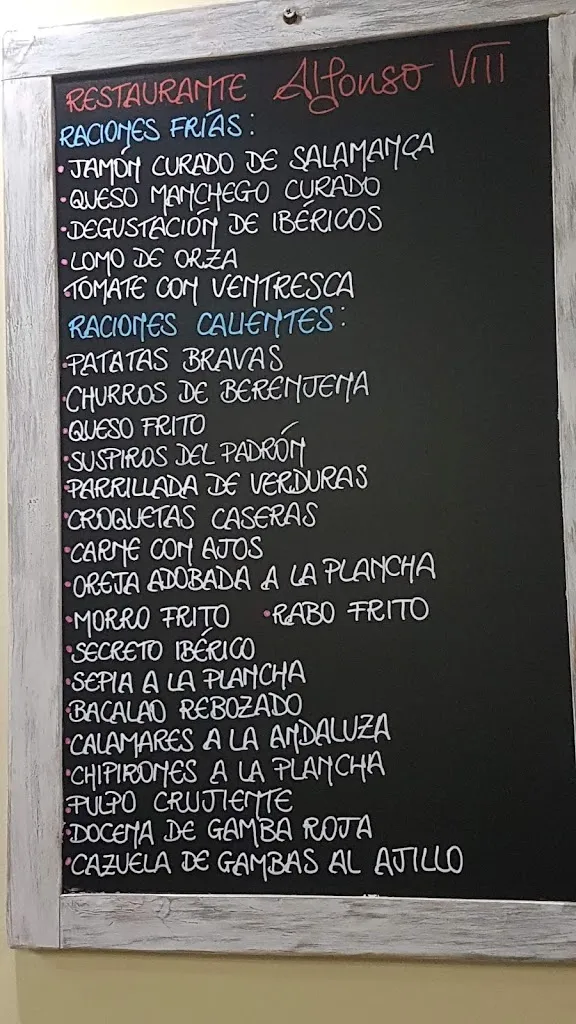 RESTAURANTE Alfonso VIII
RACIONES FRÍAS:
• JAMÓN CURADO DE SALAMANÇA
• QUESO MANCHEGO CURADO
• DEGUSTACIÓN DE IBÉRICOS
• LOMO DE ORZA
• TOMATE CON VENTRESCA
RACIONES CALIENTES:
• PATATAS BRAVAS
• CHURROS DE BERENJENA
• QUESO FRITO
• SUSPIROS DEL PADRÓN
• PARRILLADA DE VERDURAS
• CROQUETAS CASERAS
• CARNE CON AJOS
• OREJA ADOBADA A LA PLANCHA
• MORRO FRITO • RABO FRITO
• SECRETO IBÉRICO
• SEPIA A LA PLANCHA
• BACALAO REBOZADO
• CALAMARES A LA ANDALUZA
• CHIPIRONES A LA PLANCHA
• PULPO CRUJIENTE
• DOCENA DE GAMBA ROJA
• CAZUELA DE GAMBAS AL AJILLO